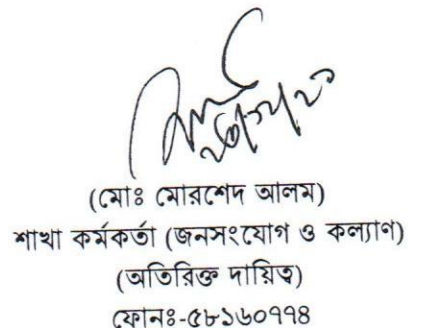 (মোঃ মোরশেদ আলম)
শাখা কর্মকর্তা (জনসংযোগ ও কল্যাণ)
(অতিরিক্ত দায়িত্ব)
ফোনঃ-৫৮১৬০৭৭৪